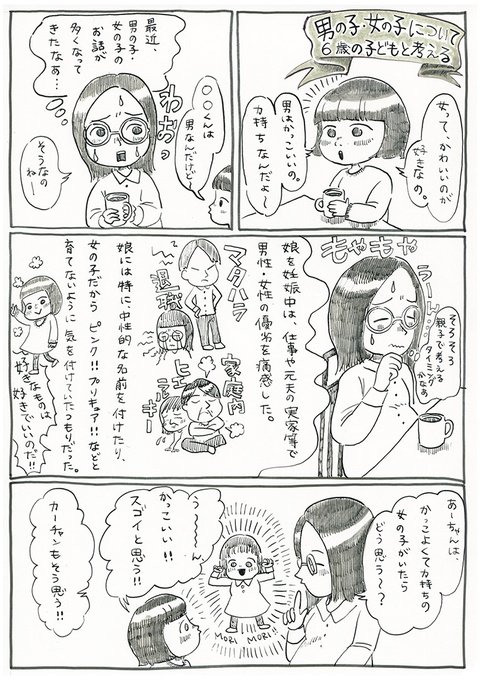 男の子・女の子について
6歳の子どもと考える
女って、かわいいのが
好きなの。
男はかっこいいの。
力持ちなんだよ〜
○○くんは
男なんだけど
わおっ
最近、
男の子・
女の子の
お話が
多くなって
きたなあ…
そうなの
ねー
もやもや
うーん…
そろそろ
親子で考える
タイミング
かなあ
娘を妊娠中は、仕事や元夫の実家等で
男性・女性の優劣を痛感した。
マタハラ
退職
家庭内
ヒエラルキー
娘には特に、中性的な名前を付けたり、
女の子だから ピンク!!プリキュア!!などと
育てないように 気を付けていたつもりだった。
好きなものは、
好きでいいのだ!!
あーちゃんは、
かっこよくて力持ちの
女の子がいたら
どう思う〜?
MORI MORI!!
うーん
かっこいい!!
スゴイと思う!!
カーチャンもそう思う!!